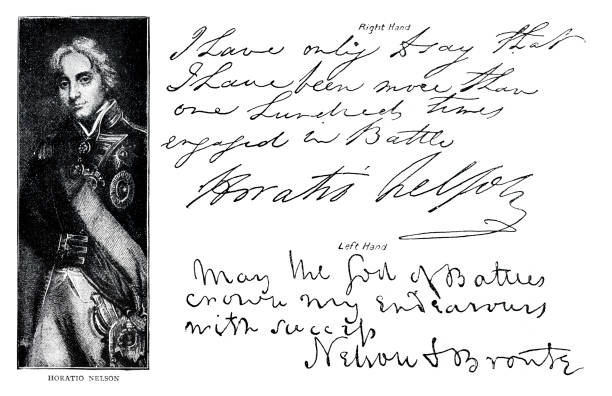 Right Hand
I have only to say that
I have been more than
one hundred times
engaged in Battle
Horatio Nelson
Left Hand
May the God of Battles
crown my Endeavours
with success
Nelson & Bronte
HORATIO NELSON